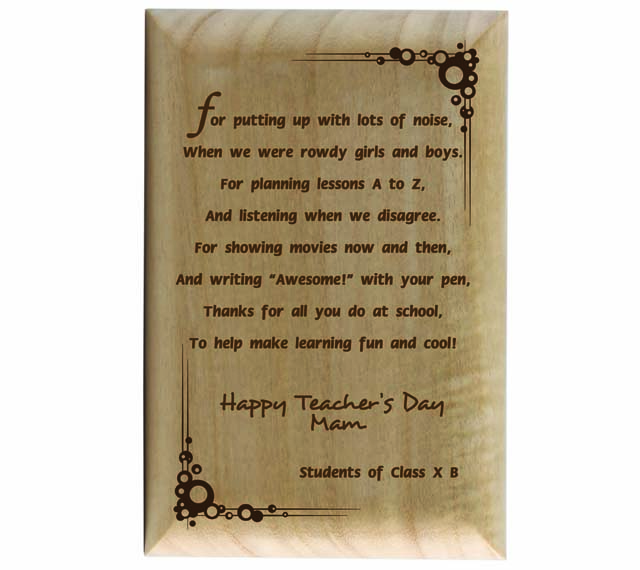 for putting up with lots of noise,
When we were rowdy girls and boys.
For planning lessons A to Z,
And listening when we disagree.
For showing movies now and then,
And writing “Awesome!” with your pen,
Thanks for all you do at school,
To help make learning fun and cool!
Happy Teacher's Day
Mam
Students of Class X B